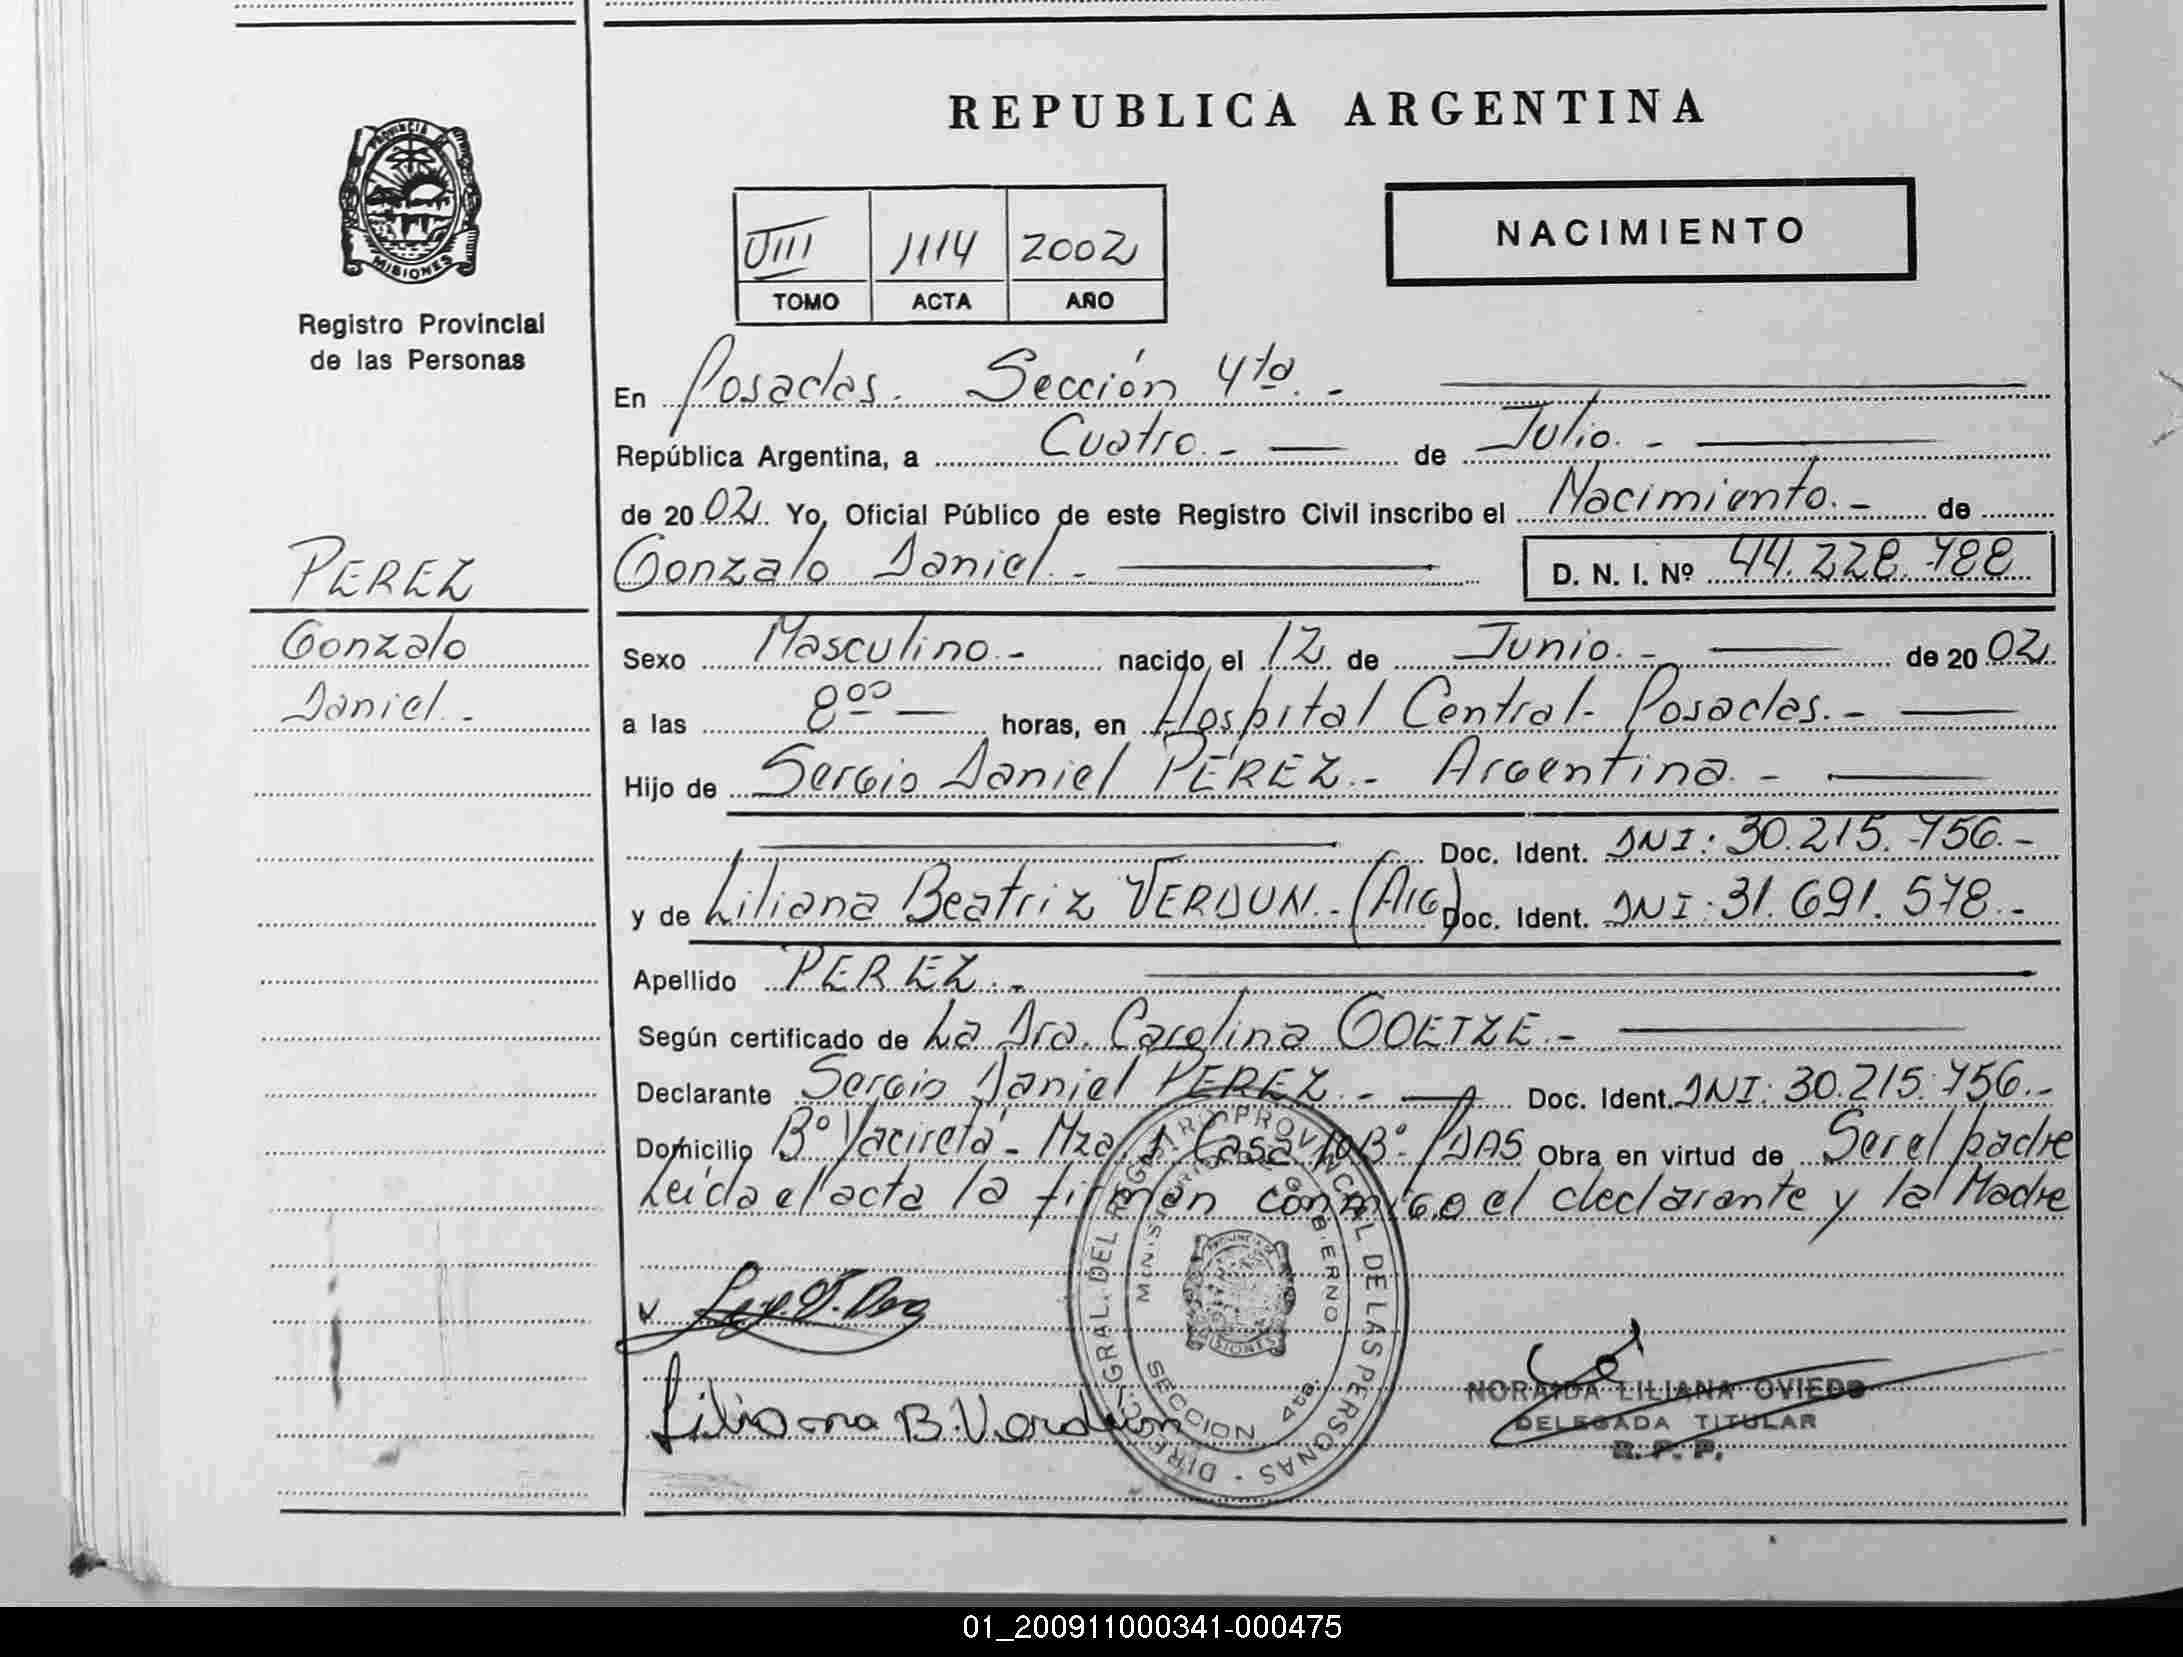 REPUBLICA ARGENTINA
PROVINCIA
MISIONES
Registro Provincial
de las Personas
VIII 1114 2002
TOMO ACTA AÑO
NACIMIENTO
En Posadas. Sección 4ta. -
República Argentina, a Cuatro. - de Julio. -
de 20 02. Yo, Oficial Público de este Registro Civil inscribo el Nacimiento. - de
Gonzalo Daniel. - D. N. I. Nº 44.228.788
PEREZ
Gonzalo
Daniel. -
Sexo Masculino. - nacido el 12 de Junio. - de 20 02
a las 8 00 horas, en Hospital Central - Posadas. -
Hijo de Sergio Daniel PEREZ. - Argentina. -
Doc. Ident. DNI: 30.215.756. -
y de Liliana Beatriz VERDUN. - (Arg) Doc. Ident. DNI: 31.691.578. -
Apellido PEREZ. -
Según certificado de La Dra. Carolina GOETZE. -
Declarante Sergio Daniel PEREZ. - Doc. Ident. DNI: 30.215.756. -
Domicilio Bº Yacireta - Mza. 1 Casa 10 Bº - PDAS Obra en virtud de Ser el padre
Leída el acta la firman conmigo el declarante y la Madre
DIREC. GRAL. DEL REGISTRO PROVINCIAL DE LAS PERSONAS
MINISTERIO DE GOBIERNO
SECCION 4ta.
Liliana B. Verdún
NORAIDA LILIANA OVIEDO
DELEGADA TITULAR
R. P. P.
01_200911000341-000475